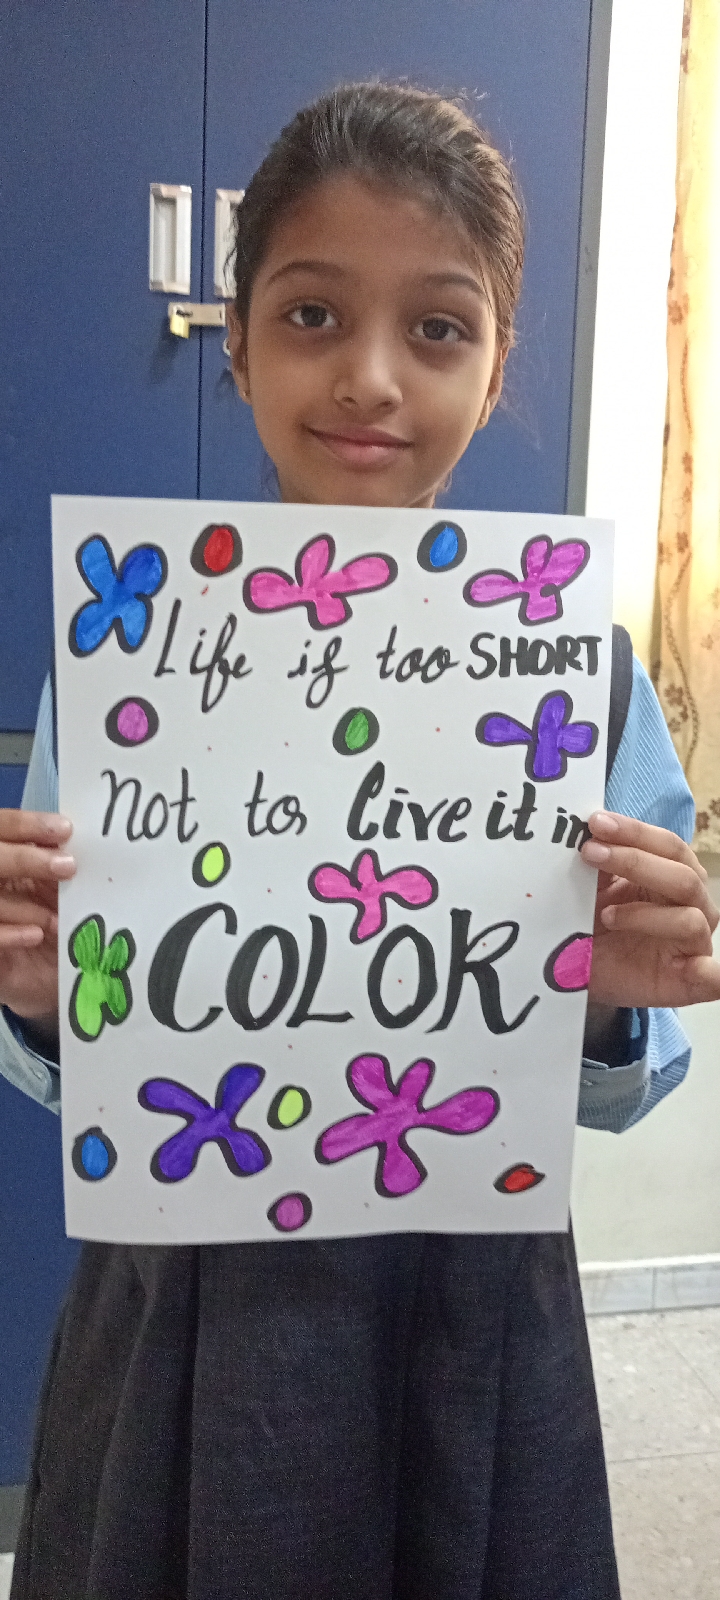 Life is too SHORT
Not to live it in
COLOR